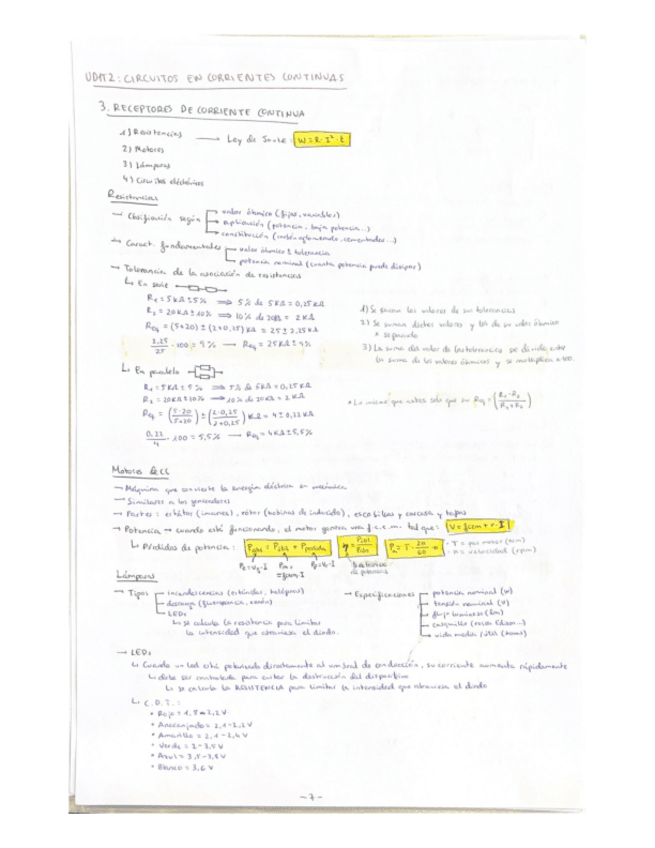 UDAT2: CIRCUITOS EN CORRIENTES CONTINUAS
3. RECEPTORES DE CORRIENTE CONTINUA
1) Resistencias → Ley de Joule: W = R·I²·t
2) Motores
3) Lámparas
4) Circuitos eléctricos
Resistencias
→ Clasificación según
valor óhmico (fijas, variables)
aplicación (potencia, baja potencia...)
constitución (carbón aglomerado, cementadas...)
→ Caract. fundamentales
valor óhmico ± tolerancia
potencia nominal (cuanta potencia puede disipar)
→ Tolerancia de la asociación de resistencias
↳ En serie
R₁ = 5KΩ ± 5% ⇒ 5% de 5KΩ = 0,25KΩ
R₂ = 20KΩ ± 10% ⇒ 10% de 20KΩ = 2KΩ
Req = (5+20) ± (2+0,25) KΩ = 25 ± 2,25KΩ
2,25/25 · 100 = 9% → Req = 25KΩ ± 9%
1) Se suman los valores de sus tolerancias
2) Se suman dichos valores y los de su valor óhmico
x separado
3) La suma del valor de las tolerancias se divide entre
la suma de los valores óhmicos y se multiplica x 100.
↳ En paralelo
R₁ = 5KΩ ± 5% ⇒ 5% de 5KΩ = 0,25KΩ
R₂ = 20KΩ ± 10% ⇒ 10% de 20KΩ = 2KΩ
Req = (5·20/5+20) ± (2·0,25/2+0,25) KΩ = 4 ± 0,22KΩ
0,22/4 · 100 = 5,5% → Req = 4KΩ ± 5,5%
* Lo mismo que antes solo que su Req = (R₁·R₂/R₁+R₂)
Motores de CC
→ Máquina que convierte la energía eléctrica en mecánica
→ Similares a los generadores
→ Partes: estátor (imanes), rotor (bobinas de inducido), escobillas y carcasa y tapas
→ Potencia → cuando está funcionando, el motor genera una f.c.e.m. tal que: V = fcem + r·I
↳ Pérdidas de potencia: Pabs = Pútil + Pperdida
η = Pútil/Pabs
Pu = T · 2π/60 · n
· T = par motor (N·m)
· n = velocidad (rpm)
Pm = fcem·I
Rendimiento de potencia
Lámparas
→ Tipos
incandescencias (estándar, halógenas)
descarga (fluorescencia, xenón)
LEDs
↳ se calcula la resistencia para limitar
la intensidad que atraviesa el diodo.
→ Especificaciones
potencia nominal (W)
tensión nominal (V)
flujo luminoso (lm)
casquillo (rosca Edison...)
vida media / útil (horas)
→ LEDs
↳ Cuando un led está polarizado directamente al umbral de conducción, su corriente aumenta rápidamente
↳ debe ser controlada para evitar la destrucción del dispositivo
↳ se calcula la RESISTENCIA para limitar la intensidad que atraviesa el diodo
↳ C.D.T.:
• Rojo = 1,8-2,2 V
• Anaranjado = 2,1-2,2 V
• Amarillo = 2,1-2,4 V
• Verde = 2-3,5 V
• Azul = 3,5-3,8 V
• Blanco = 3,6 V
-7-